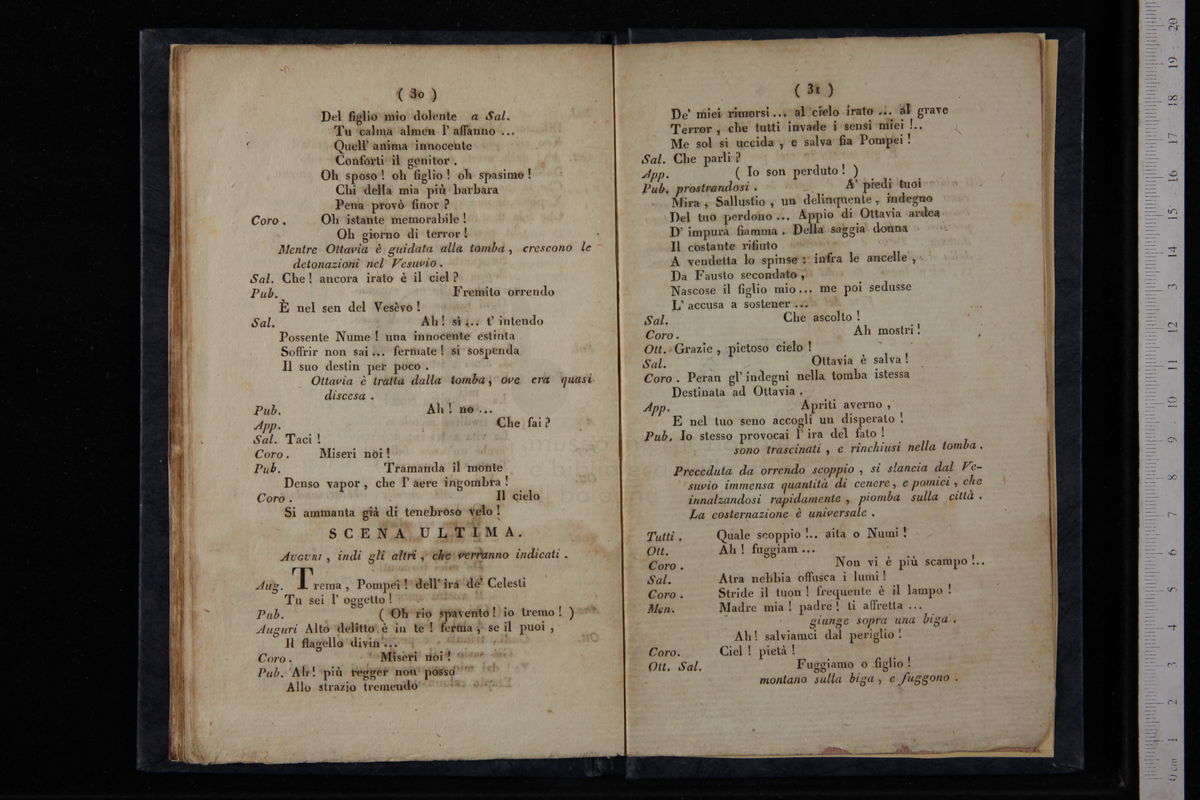 ( 30 )
Del figlio mio dolente a Sal.
Tu calma almen l' affanno ...
Quell' anima innocente
Conforti il genitor .
Oh sposo ! oh figlio ! oh spasimo !
Chi della mia più barbara
Pena provò finor ?
Coro . Oh istante memorabile !
Oh giorno di terror !
Mentre Ottavia è guidata alla tomba , crescono le
detonazioni nel Vesuvio .
Sal. Che ! ancora irato è il ciel ?
Pub. Fremito orrendo
È nel sen del Vesèvo !
Sal. Ah ! sì ... t' intendo
Possente Nume ! una innocente estinta
Soffrir non sai ... fermate ! si sospenda
Il suo destin per poco .
Ottavia è tratta dalla tomba , ove era quasi
discesa .
Pub. Ah ! no ...
App. Che fai ?
Sal. Taci !
Coro . Miseri noi !
Pub. Tramanda il monte
Denso vapor , che l' aere ingombra !
Coro . Il cielo
Si ammanta già di tenebroso velo !
SCENA ULTIMA.
AUGURI , indi gli altri , che verranno indicati .
Aug. Trema , Pompei ! dell' ira de' Celesti
Tu sei l' oggetto !
Pub. ( Oh rio spavento ! io tremo ! )
Auguri Alto delitto è in te ! ferma , se il puoi ,
Il flagello divin ...
Coro . Miseri noi !
Pub. Ah ! più regger non posso
Allo strazio tremendo
( 31 )
De' miei rimorsi ... al cielo irato ... al grave
Terror , che tutti invade i sensi miei !..
Me sol si uccida , e salva fia Pompei !
Sal. Che parli ?
App. ( Io son perduto ! )
Pub. prostrandosi . A' piedi tuoi
Mira , Sallustio , un delinquente , indegno
Del tuo perdono ... Appio di Ottavia ardea
D' impura fiamma . Della saggia donna
Il costante rifiuto
A vendetta lo spinse : infra le ancelle ,
Da Fausto secondato ,
Nascose il figlio mio ... me poi sedusse
L' accusa a sostener ...
Sal. Che ascolto !
Coro . Ah mostri !
Ott. Grazie , pietoso cielo !
Sal. Ottavia è salva !
Coro . Peran gl' indegni nella tomba istessa
Destinata ad Ottavia .
App. Apriti averno ,
E nel tuo seno accogli un disperato !
Pub. Io stesso provocai l' ira del fato !
sono trascinati , e rinchiusi nella tomba .
Preceduta da orrendo scoppio , si slancia dal Ve-
suvio immensa quantità di cenere , e pomici , che
innalzandosi rapidamente , piomba sulla città .
La costernazione è universale .
Tutti . Quale scoppio !.. aita o Numi !
Ott. Ah ! fuggiam ...
Coro . Non vi è più scampo !..
Sal. Atra nebbia offusca i lumi !
Coro . Stride il tuon ! frequente è il lampo !
Men. Madre mia ! padre ! ti affretta ...
giunge sopra una biga .
Ah ! salviamci dal periglio !
Coro. Ciel ! pietà !
Ott. Sal. Fuggiamo o figlio !
montano sulla biga , e fuggono .
0 cm 1 2 3 4 5 6 7 8 9 10 11 12 13 14 15 16 17 18 19 20